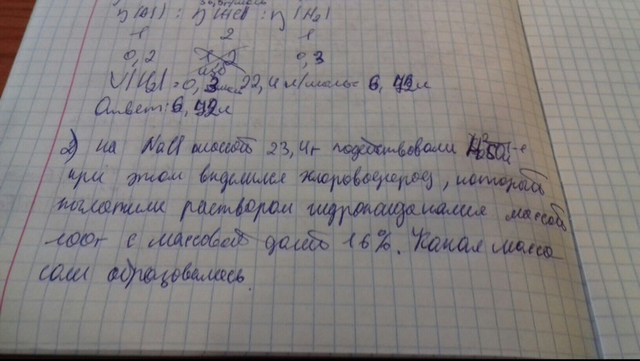 η (Al) : η (HCl) : η (H₂)
1 2 1
0,2 0,3
V(H₂) = 0,3 моль · 22,4 л/моль = 6,72 л
Ответ: 6,72 л
2) на NaCl массой 23,4 г подействовали
при этом выделился хлороводород, который
поглотили раствором гидроксида калия массой
100г с массовой долей 16%. Какая масса
соли образовалась.